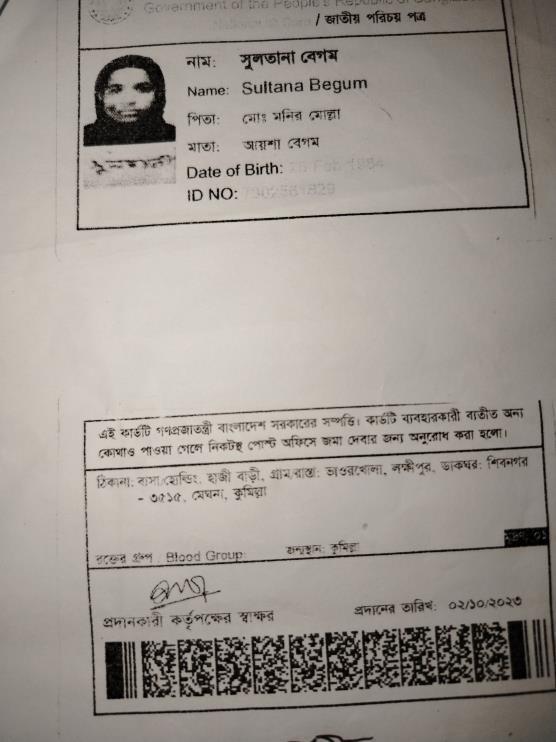 Government of the People's Republic of
/ জাতীয় পরিচয় পত্র
নাম: সুলতানা বেগম
Name: Sultana Begum
পিতা: মোঃ মনির মোল্লা
মাতা: আয়শা বেগম
Date of Birth: Feb 1984
ID NO:
এই কার্ডটি গণপ্রজাতন্ত্রী বাংলাদেশ সরকারের সম্পত্তি। কার্ডটি ব্যবহারকারী ব্যতীত অন্য
কোথাও পাওয়া গেলে নিকটস্থ পোস্ট অফিসে জমা দেবার জন্য অনুরোধ করা হলো।
ঠিকানা: বাসা/হোল্ডিং: হাজী বাড়ী, গ্রাম/রাস্তা: ভাওরখোলা, লক্ষীপুর, ডাকঘর: শিবনগর
- ৩৫১৫, মেঘনা, কুমিল্লা
রক্তের গ্রুপ / Blood Group: জন্মস্থান: কুমিল্লা
প্রদানকারী কর্তৃপক্ষের স্বাক্ষর প্রদানের তারিখ: ০২/১০/২০২৩